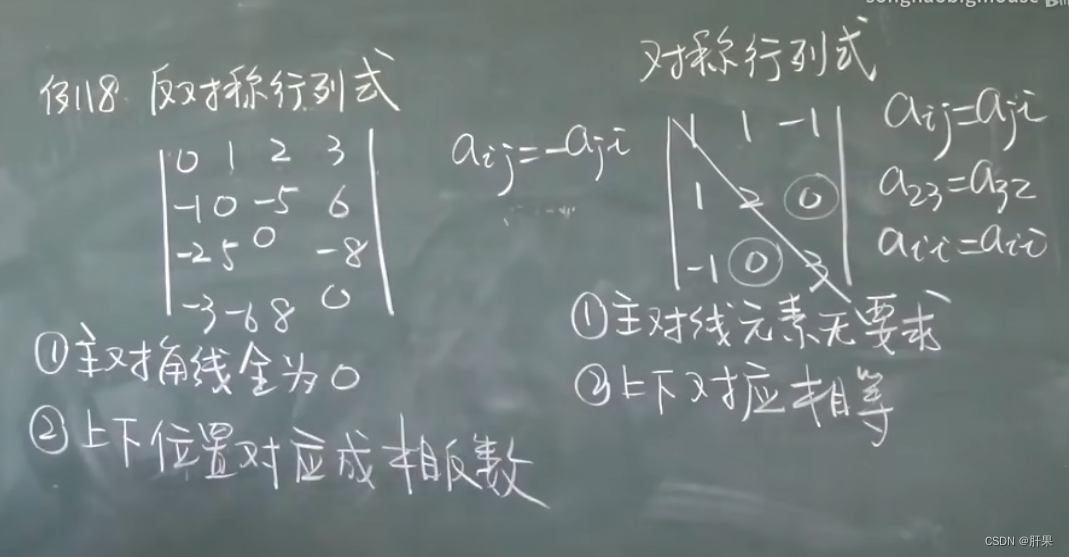 songhaobigmouse
例18 反对称行列式
0 1 2 3
-1 0 -5 6
-2 5 0 -8
-3 -6 8 0
aij=-aji
①主对角线全为0
②上下位置对应成相反数
对称行列式
1 1 -1
1 2 0
-1 0 3
aij=aji
a23=a32
aii=aii
①主对线元素无要求
②上下对应相等
CSDN @肝果